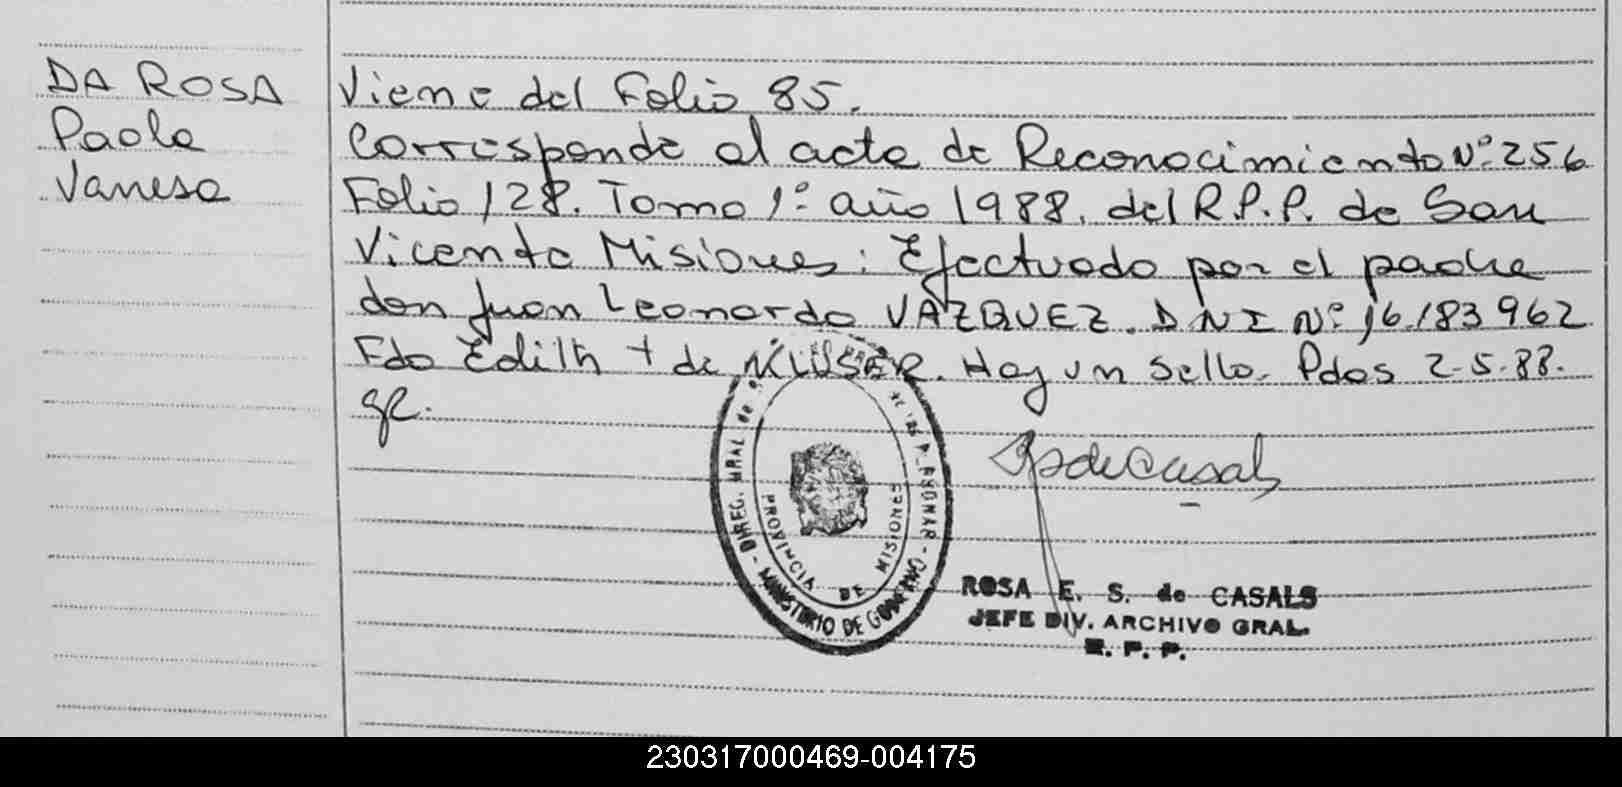 DA ROSA
Paola
Vanesa
Viene del Folio 85.
Corresponde al acta de Reconocimiento Nº 256
Folio 128. Tomo 1º año 1988. del R.P.P. de San
Vicente Misiones: Efectuado por el padre
don Juan Leonardo VAZQUEZ. DNI Nº 16.183962
Fdo Edith + de KLUSER. Hay un sello. Pdas 2.5.88.
gr.
DIREC. GRAL de
PROVINCIA DE MISIONES
- MINISTERIO DE GOBIERNO -
RpdeCasals
ROSA E. S. de CASALS
JEFE DIV. ARCHIVO GRAL.
R. P. P.
230317000469-004175